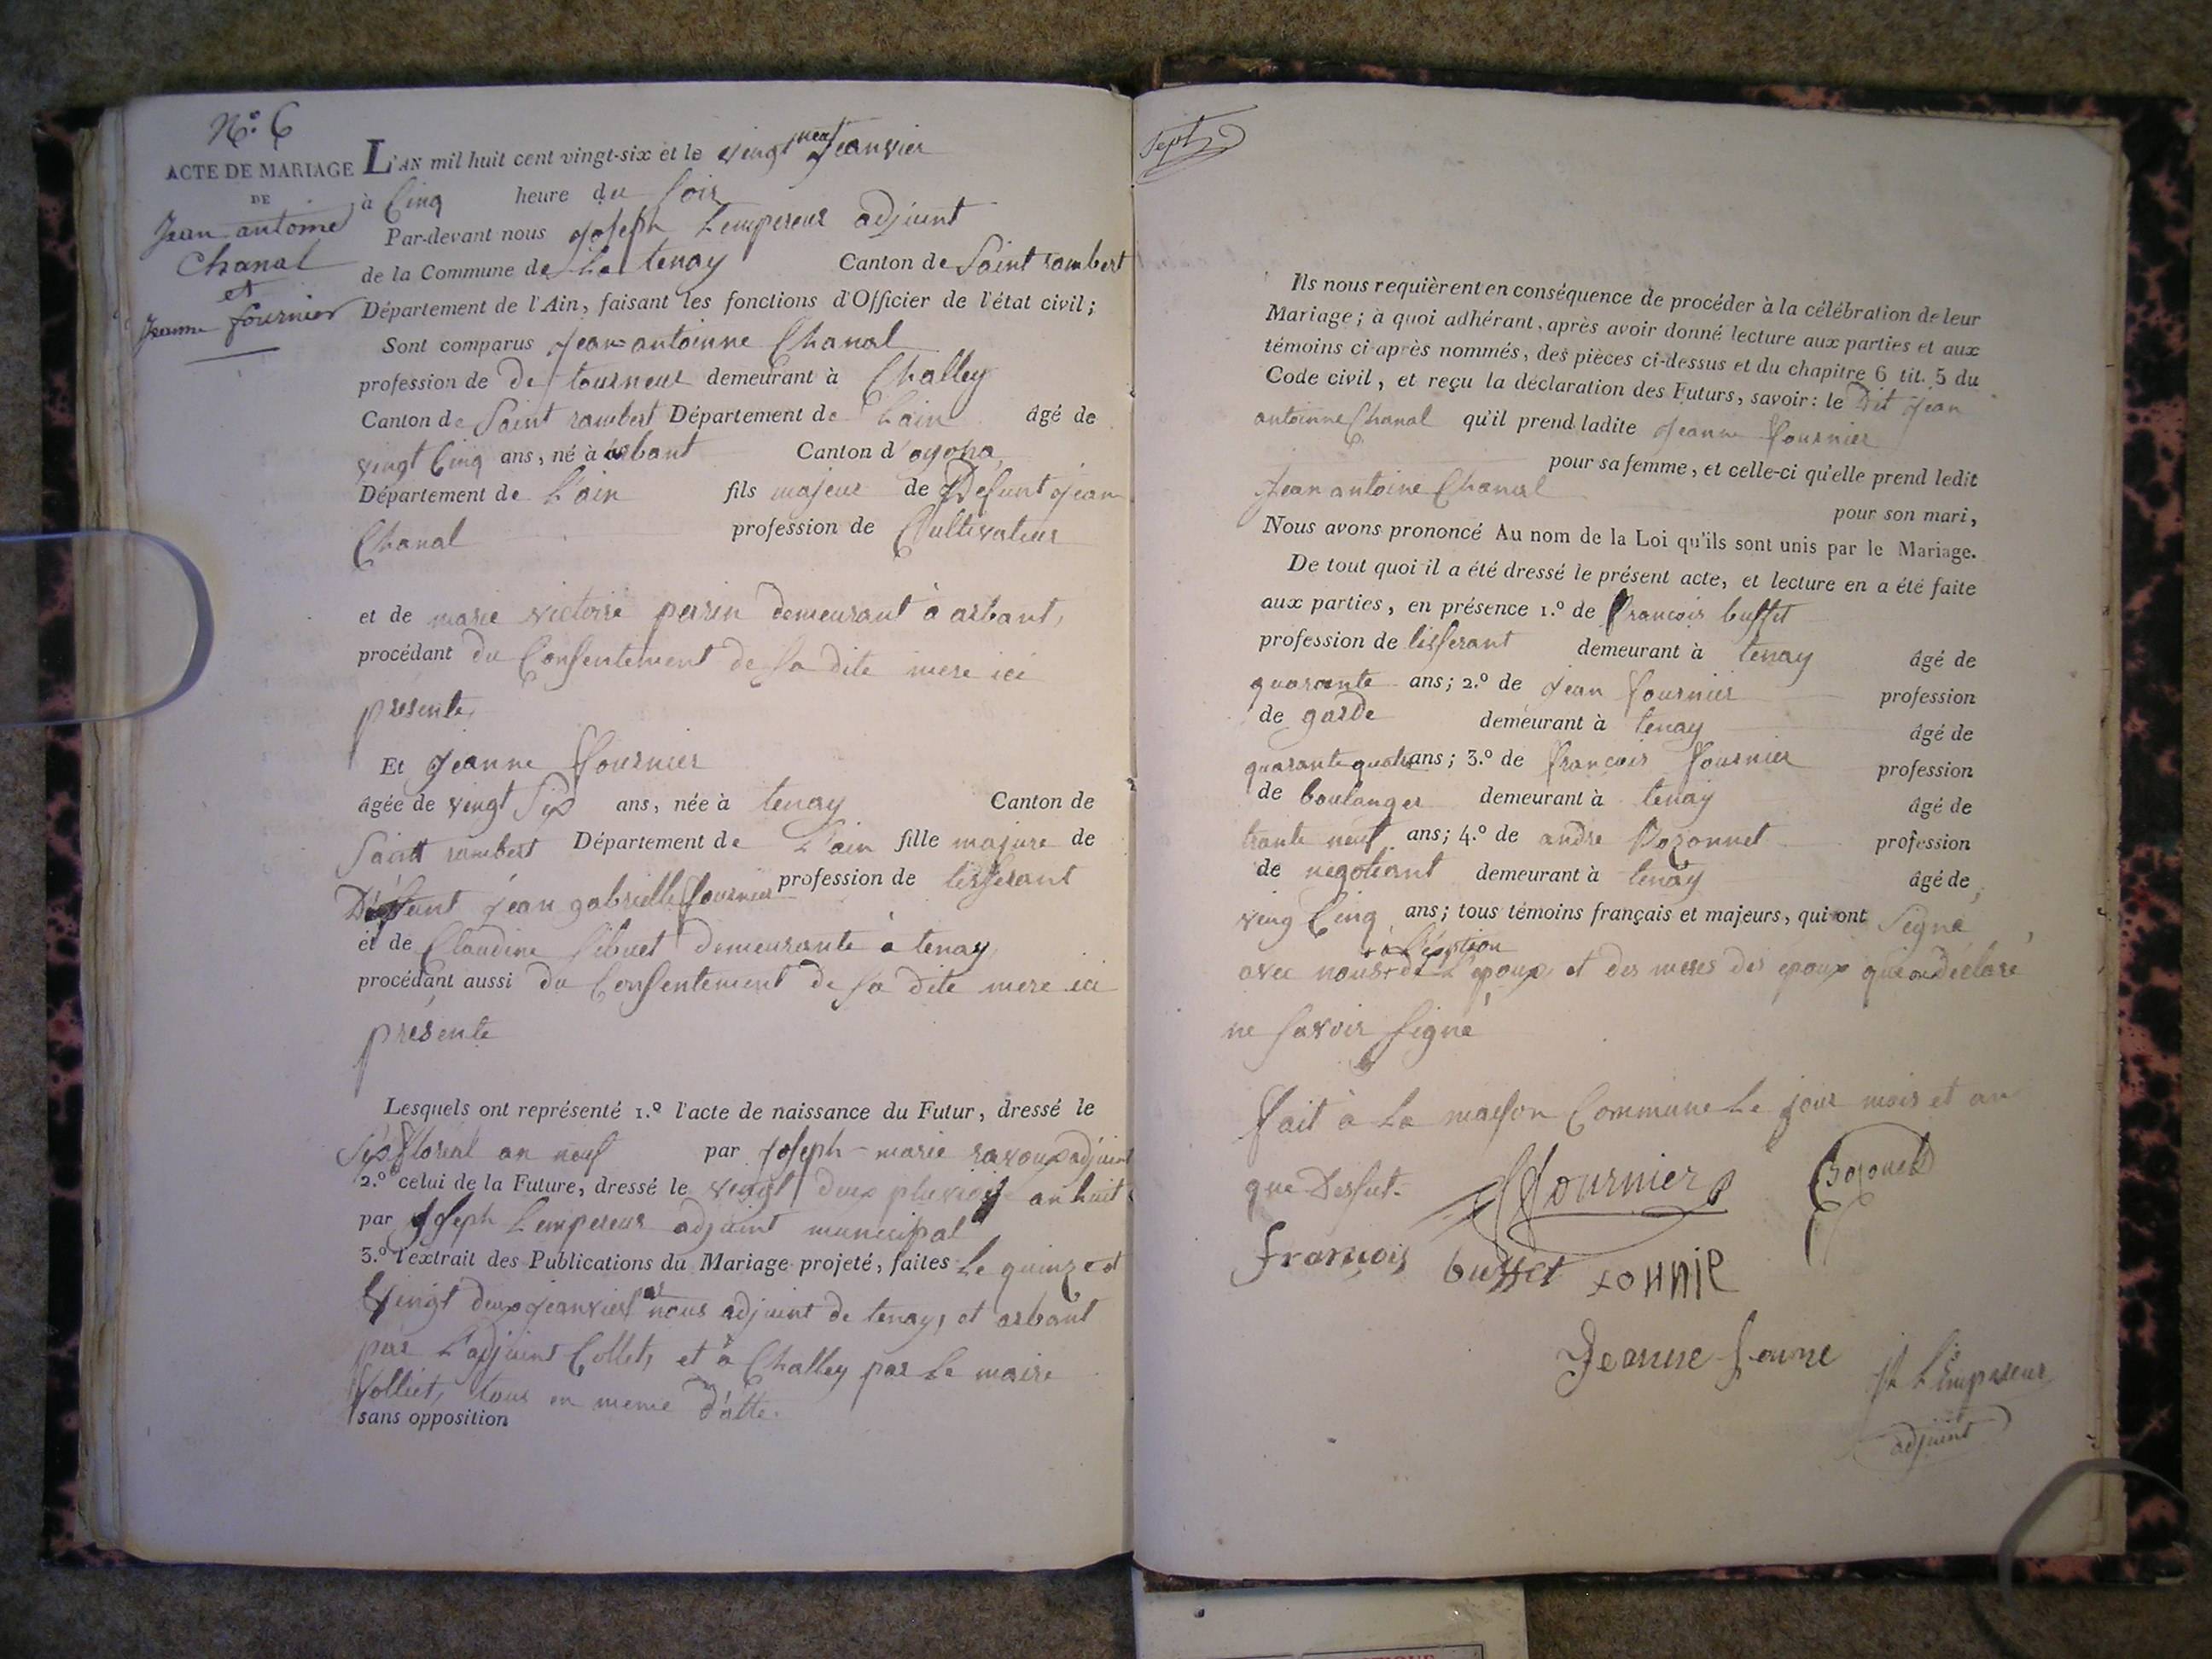 N.o 6
ACTE DE MARIAGE
DE
Jean antoine
Chanal
et
Jeanne fournier
L'AN mil huit cent vingt-six et le vingt neuf Jeanvier
à Cinq heure du soir
Par-devant nous Joseph Lempereur adjiunt
de la Commune de tenay Canton de Saint rambert
Département de l'Ain, faisant les fonctions d'Officier de l'état civil;
Sont comparus Jean-antoinne Chanal
profession de de tourneur demeurant à Challey
Canton de Saint rambert Département de Lain âgé de
vingt Cinq ans, né à arbant Canton d'oyona
Département de L'ain fils majeur de Defunt Jean
Chanal profession de Cultivateur
et de marie victoire perrin demeurant à arbant,
procédant du Consentement de sa dite mere ici
presente,
Et Jeanne fournier
âgée de vingt Six ans, née à tenay Canton de
Saint rambert Département de L'ain fille majure de
Défunt jean gabrielle fournier profession de tisserant
et de Claudine Sibuet demeurante à tenay
procédant aussi du Consentement de sa dite mere ici
presente
Lesquels ont représenté 1.º l'acte de naissance du Futur, dressé le
Six floréal an neuf par Joseph-marie ravoux adjiunt
2.º celui de la Future, dressé le vingt deux pluviose an huit
par Joseph Lempereur adjiunt municipal
3.º l'extrait des Publications du Mariage projeté, faites Le quinze et
Vingt deux Jeanvier par nous adjiunt de tenay, et arbant
par L'adjiunt Collet, et à Challey par Le maire
tous en meme datte.
sans opposition
Sept
Ils nous requièrent en conséquence de procéder à la célébration de leur
Mariage; à quoi adhérant, après avoir donné lecture aux parties et aux
témoins ci-après nommés, des pièces ci-dessus et du chapitre 6 tit. 5 du
Code civil, et reçu la déclaration des Futurs, savoir: le Dit Jean
antoinne Chanal qu'il prend ladite Jeanne fournier
pour sa femme, et celle-ci qu'elle prend ledit
Jean antoine Chanal
pour son mari,
Nous avons prononcé Au nom de la Loi qu'ils sont unis par le Mariage.
De tout quoi il a été dressé le présent acte, et lecture en a été faite
aux parties, en présence 1.º de francois buffet
profession de tisserant demeurant à tenay âgé de
quarante ans; 2.º de Jean fournier profession
de garde demeurant à tenay âgé de
quarante quatre ans; 3.º de francois fournier profession
de boulanger demeurant à tenay âgé de
trante neuf ans; 4.º de andre Bozonnet profession
de negotiant demeurant à tenay âgé de
ving Cinq ans; tous témoins français et majeurs, qui ont Signé
+ à L'exption
avec nous + de L'epoux et des meres des epoux qui on déclaré
ne savoir signé
fait à La maison Commune Le jour mois et an
que Dessut.
fournier
Bozonet
françois buffet
Jeanne
Lempereur
adjiunt